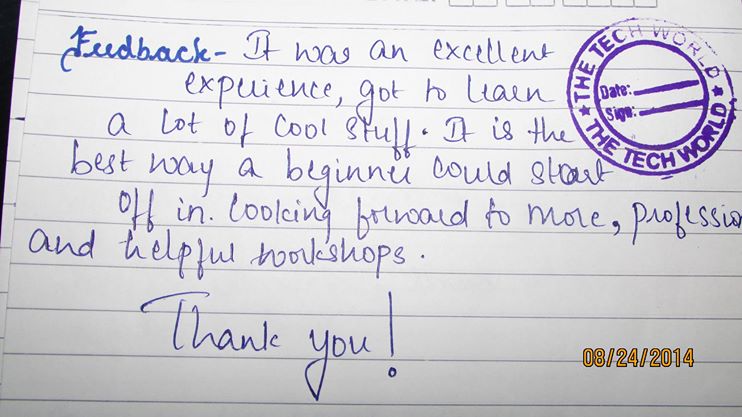 Feedback - It was an excellent
experience, got to learn
a lot of cool stuff. It is the
best way a beginner could start
off in. Looking forward to more, professio
and helpful workshops.
Thank you!
THE TECH WORLD
Date:
Sign:
THE TECH WORLD
08/24/2014